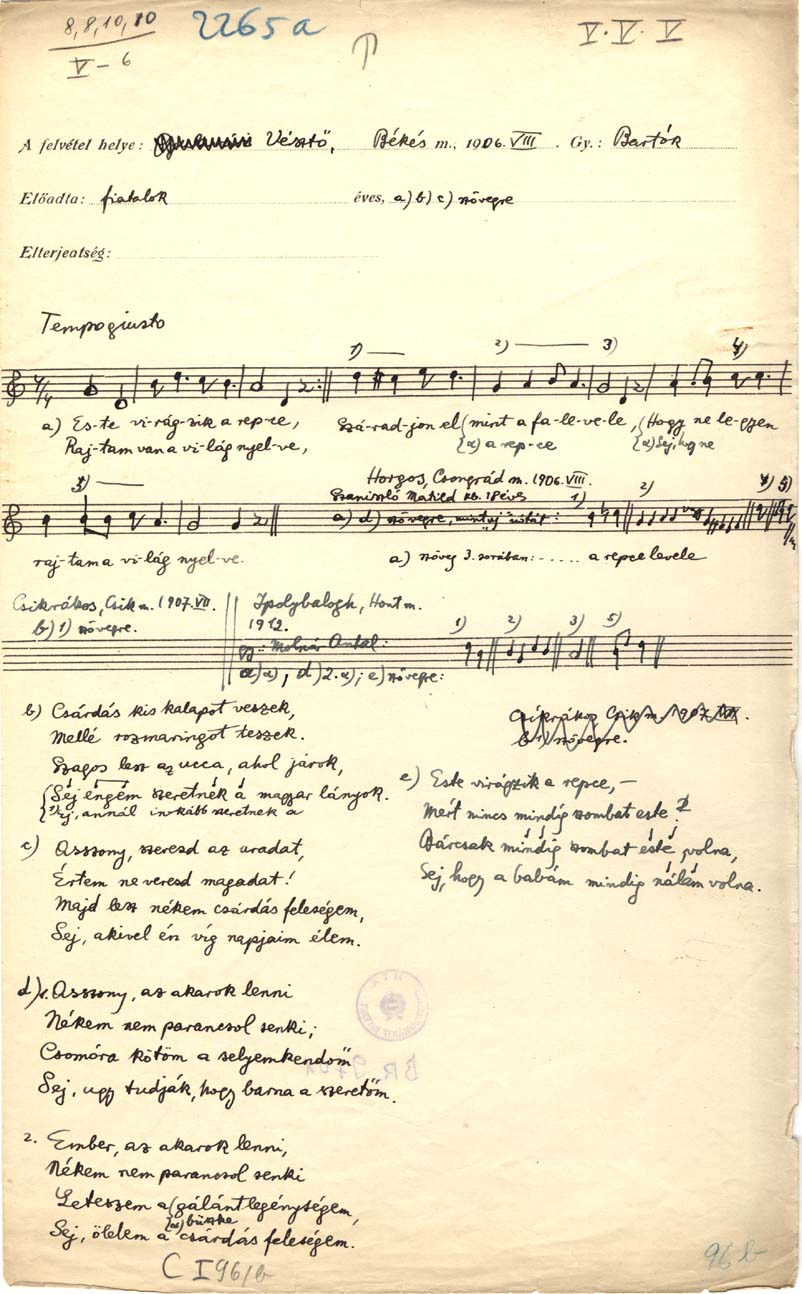 8, 8, 10, 10
V - 6
2265 a
V. V. V
A felvétel helye: Vésztő, Békés m., 1906. VIII. Gy.: Bartók
Előadta: fiatalok éves, a) b) c) szövegre
Elterjedtség:
Tempo giusto
1) 2) 3) 4)
a) Es-te vi-rág-zik a rep-ce, Szá-rad-jon el (mint a fa-le-ve-le, (Hogy ne le-gyen
Raj-tam van a vi-lág nyel-ve, {α) a rep-ce {α) Sej, hogy ne
3)
Horgos, Csongrád m. 1906. VIII.
Szaniszló Matild kb. 18 éves
a) d) szövegre, 1) 2) 4) 5)
raj-tam a vi-lág nyel-ve. a) szöveg 3. sorában: ..... a repce levele
Csikrákos, Csik m. 1907. VII.
b) 1) szövegre.
Ipolybalogh, Hont m.
1912.
gy.: Molnár Antal:
a) α), d) 2. α); e) szövegre:
1) 2) 3) 5)
b) Csárdás kis kalapot veszek,
Mellé rozmaringot teszek.
Szagos lesz az ucca, ahol járok,
{Sej engem szeretnek a magyar lányok.
{1) Sej, annál inkább szeretnek a
Csíkrákos Csik m. 1907. VII.
b) 1) szövegre.
c) Asszony, szeresd az uradat,
Értem ne veresd magadat!
Majd lesz nékem csárdás feleségem,
Sej, akivel én víg napjaim élem.
e) Este virágzik a repce, –
Mert nincs mindig szombat este?
Bárcsak mindig szombat este volna,
Sej, hogy a babám mindig nálam volna.
d) 1. Asszony, az akarok lenni
Nékem nem parancsol senki;
Csomóra kötöm a selyemkendőm
Sej, ugy tudják, hogy barna a szeretőm.
2. Ember, az akarok lenni,
Nékem nem parancsol senki
Leteszem a (gálánt legénységem,
{α) büszke
Sej, ölelem a csárdás feleségem.
C I 96/b
96 b